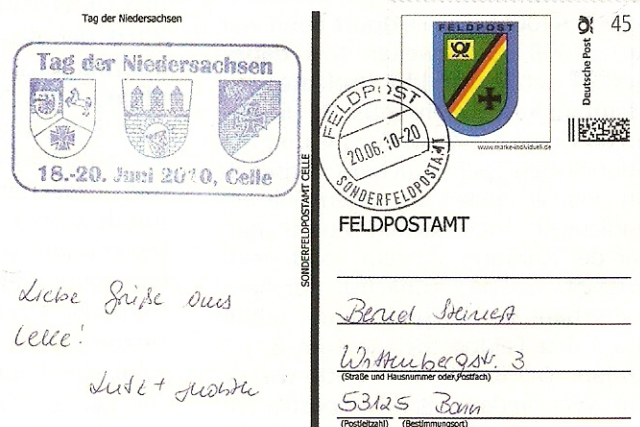 Tag der Niedersachsen
Tag der Niedersachsen
18.-20. Juni 2010, Celle
Liebe Grüße aus
Celle!
Lutz +
SONDERFELDPOSTAMT CELLE
FELDPOST
Deutsche Post
45
www.marke-individuell.de
FELDPOST
20.06.10-20
SONDERFELDPOSTAMT
FELDPOSTAMT
Bernd Steinert
Wittenbergstr. 3
(Straße und Hausnummer oder Postfach)
53125 Bonn
(Postleitzahl) (Bestimmungsort)